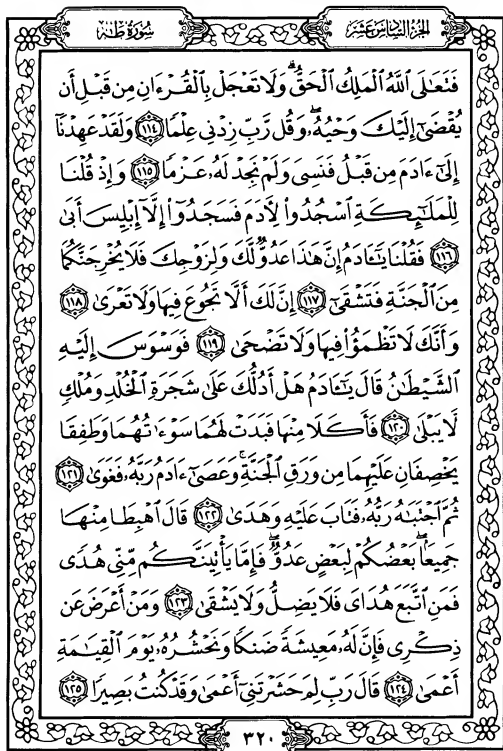 الجزء السادس عشر
سورة طه
فَتَعَٰلَى ٱللَّهُ ٱلْمَلِكُ ٱلْحَقُّ ۗ وَلَا تَعْجَلْ بِٱلْقُرْءَانِ مِن قَبْلِ أَن
يُقْضَىٰٓ إِلَيْكَ وَحْيُهُۥ ۖ وَقُل رَّبِّ زِدْنِى عِلْمًا ۝١١٤ وَلَقَدْ عَهِدْنَآ
إِلَىٰٓ ءَادَمَ مِن قَبْلُ فَنَسِىَ وَلَمْ نَجِدْ لَهُۥ عَزْمًا ۝١١٥ وَإِذْ قُلْنَا
لِلْمَلَٰٓئِكَةِ ٱسْجُدُوا۟ لِءَادَمَ فَسَجَدُوٓا۟ إِلَّآ إِبْلِيسَ أَبَىٰ
۝١١٦ فَقُلْنَا يَٰٓـَٔادَمُ إِنَّ هَٰذَا عَدُوٌّ لَّكَ وَلِزَوْجِكَ فَلَا يُخْرِجَنَّكُمَا
مِنَ ٱلْجَنَّةِ فَتَشْقَىٰٓ ۝١١٧ إِنَّ لَكَ أَلَّا تَجُوعَ فِيهَا وَلَا تَعْرَىٰ ۝١١٨
وَأَنَّكَ لَا تَظْمَؤُا۟ فِيهَا وَلَا تَضْحَىٰ ۝١١٩ فَوَسْوَسَ إِلَيْهِ
ٱلشَّيْطَٰنُ قَالَ يَٰٓـَٔادَمُ هَلْ أَدُلُّكَ عَلَىٰ شَجَرَةِ ٱلْخُلْدِ وَمُلْكٍ
لَّا يَبْلَىٰ ۝١٢٠ فَأَكَلَا مِنْهَا فَبَدَتْ لَهُمَا سَوْءَٰتُهُمَا وَطَفِقَا
يَخْصِفَانِ عَلَيْهِمَا مِن وَرَقِ ٱلْجَنَّةِ ۚ وَعَصَىٰٓ ءَادَمُ رَبَّهُۥ فَغَوَىٰ ۝١٢١
ثُمَّ ٱجْتَبَٰهُ رَبُّهُۥ فَتَابَ عَلَيْهِ وَهَدَىٰ ۝١٢٢ قَالَ ٱهْبِطَا مِنْهَا
جَمِيعًۢا ۖ بَعْضُكُمْ لِبَعْضٍ عَدُوٌّ ۖ فَإِمَّا يَأْتِيَنَّكُم مِّنِّى هُدًى
فَمَنِ ٱتَّبَعَ هُدَاىَ فَلَا يَضِلُّ وَلَا يَشْقَىٰ ۝١٢٣ وَمَنْ أَعْرَضَ عَن
ذِكْرِى فَإِنَّ لَهُۥ مَعِيشَةً ضَنكًا وَنَحْشُرُهُۥ يَوْمَ ٱلْقِيَٰمَةِ
أَعْمَىٰ ۝١٢٤ قَالَ رَبِّ لِمَ حَشَرْتَنِىٓ أَعْمَىٰ وَقَدْ كُنتُ بَصِيرًا ۝١٢٥
٣٢٠